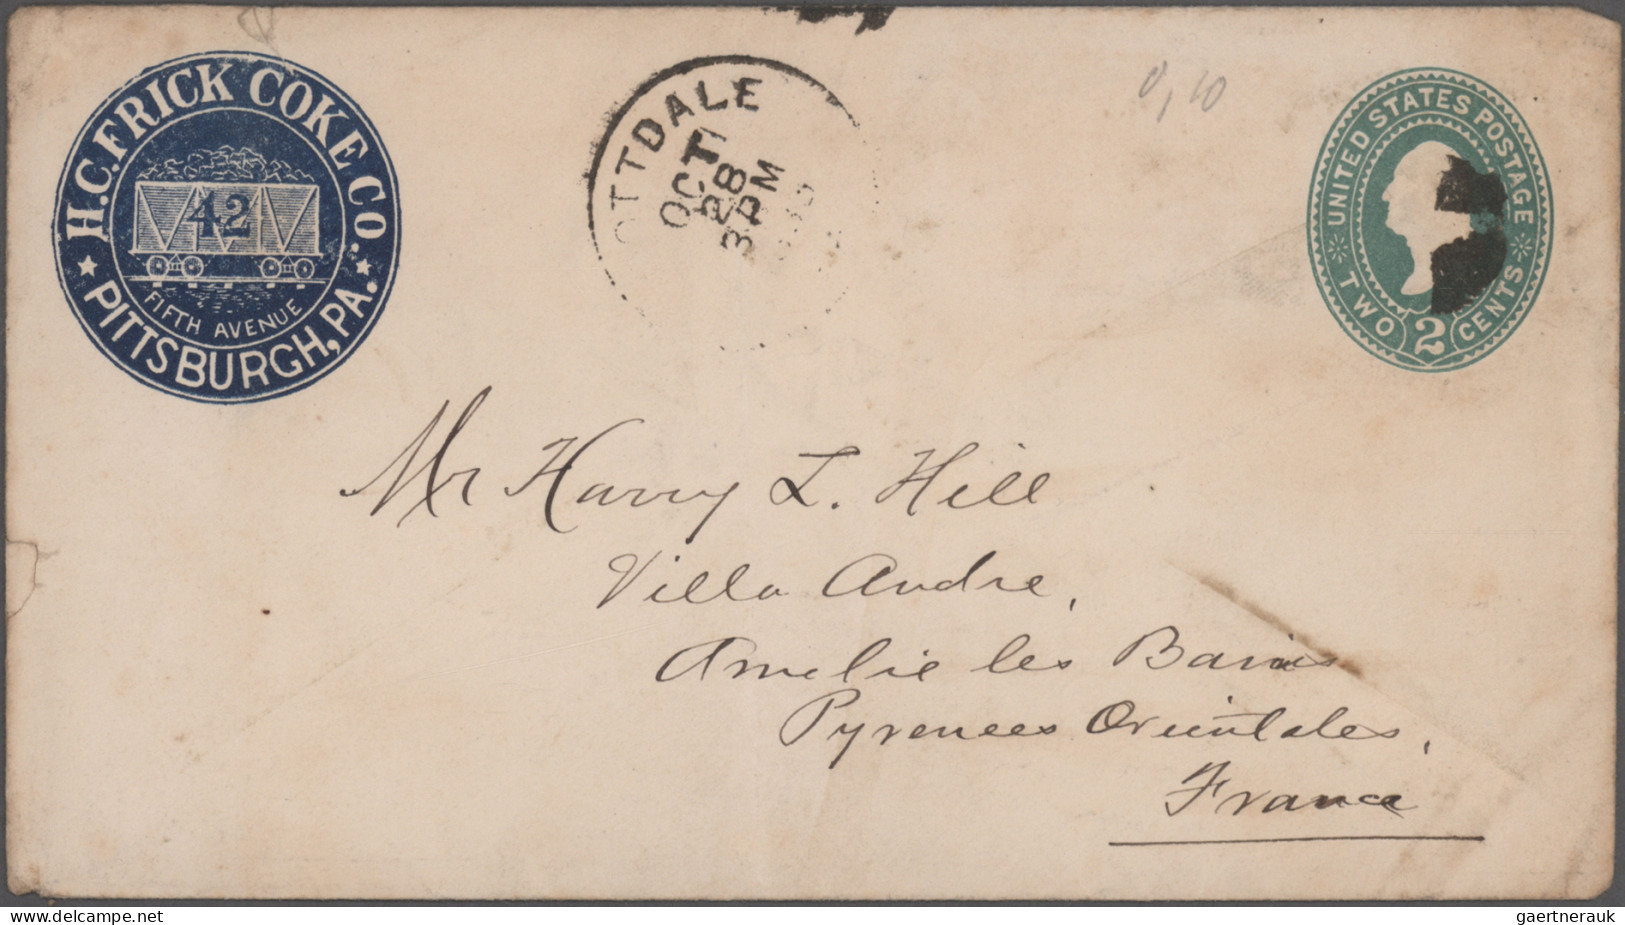 H.C. FRICK COKE CO.
42
FIFTH AVENUE
★ PITTSBURGH, PA. ★
OTTDALE
OCT
28
3 PM
0,10
UNITED STATES POSTAGE
TWO 2 CENTS
Mr Harry L. Hill
Villa Andre,
Amelie les Bains
Pyrenees Orientales,
France
gaertnerauk @ delcampe.net